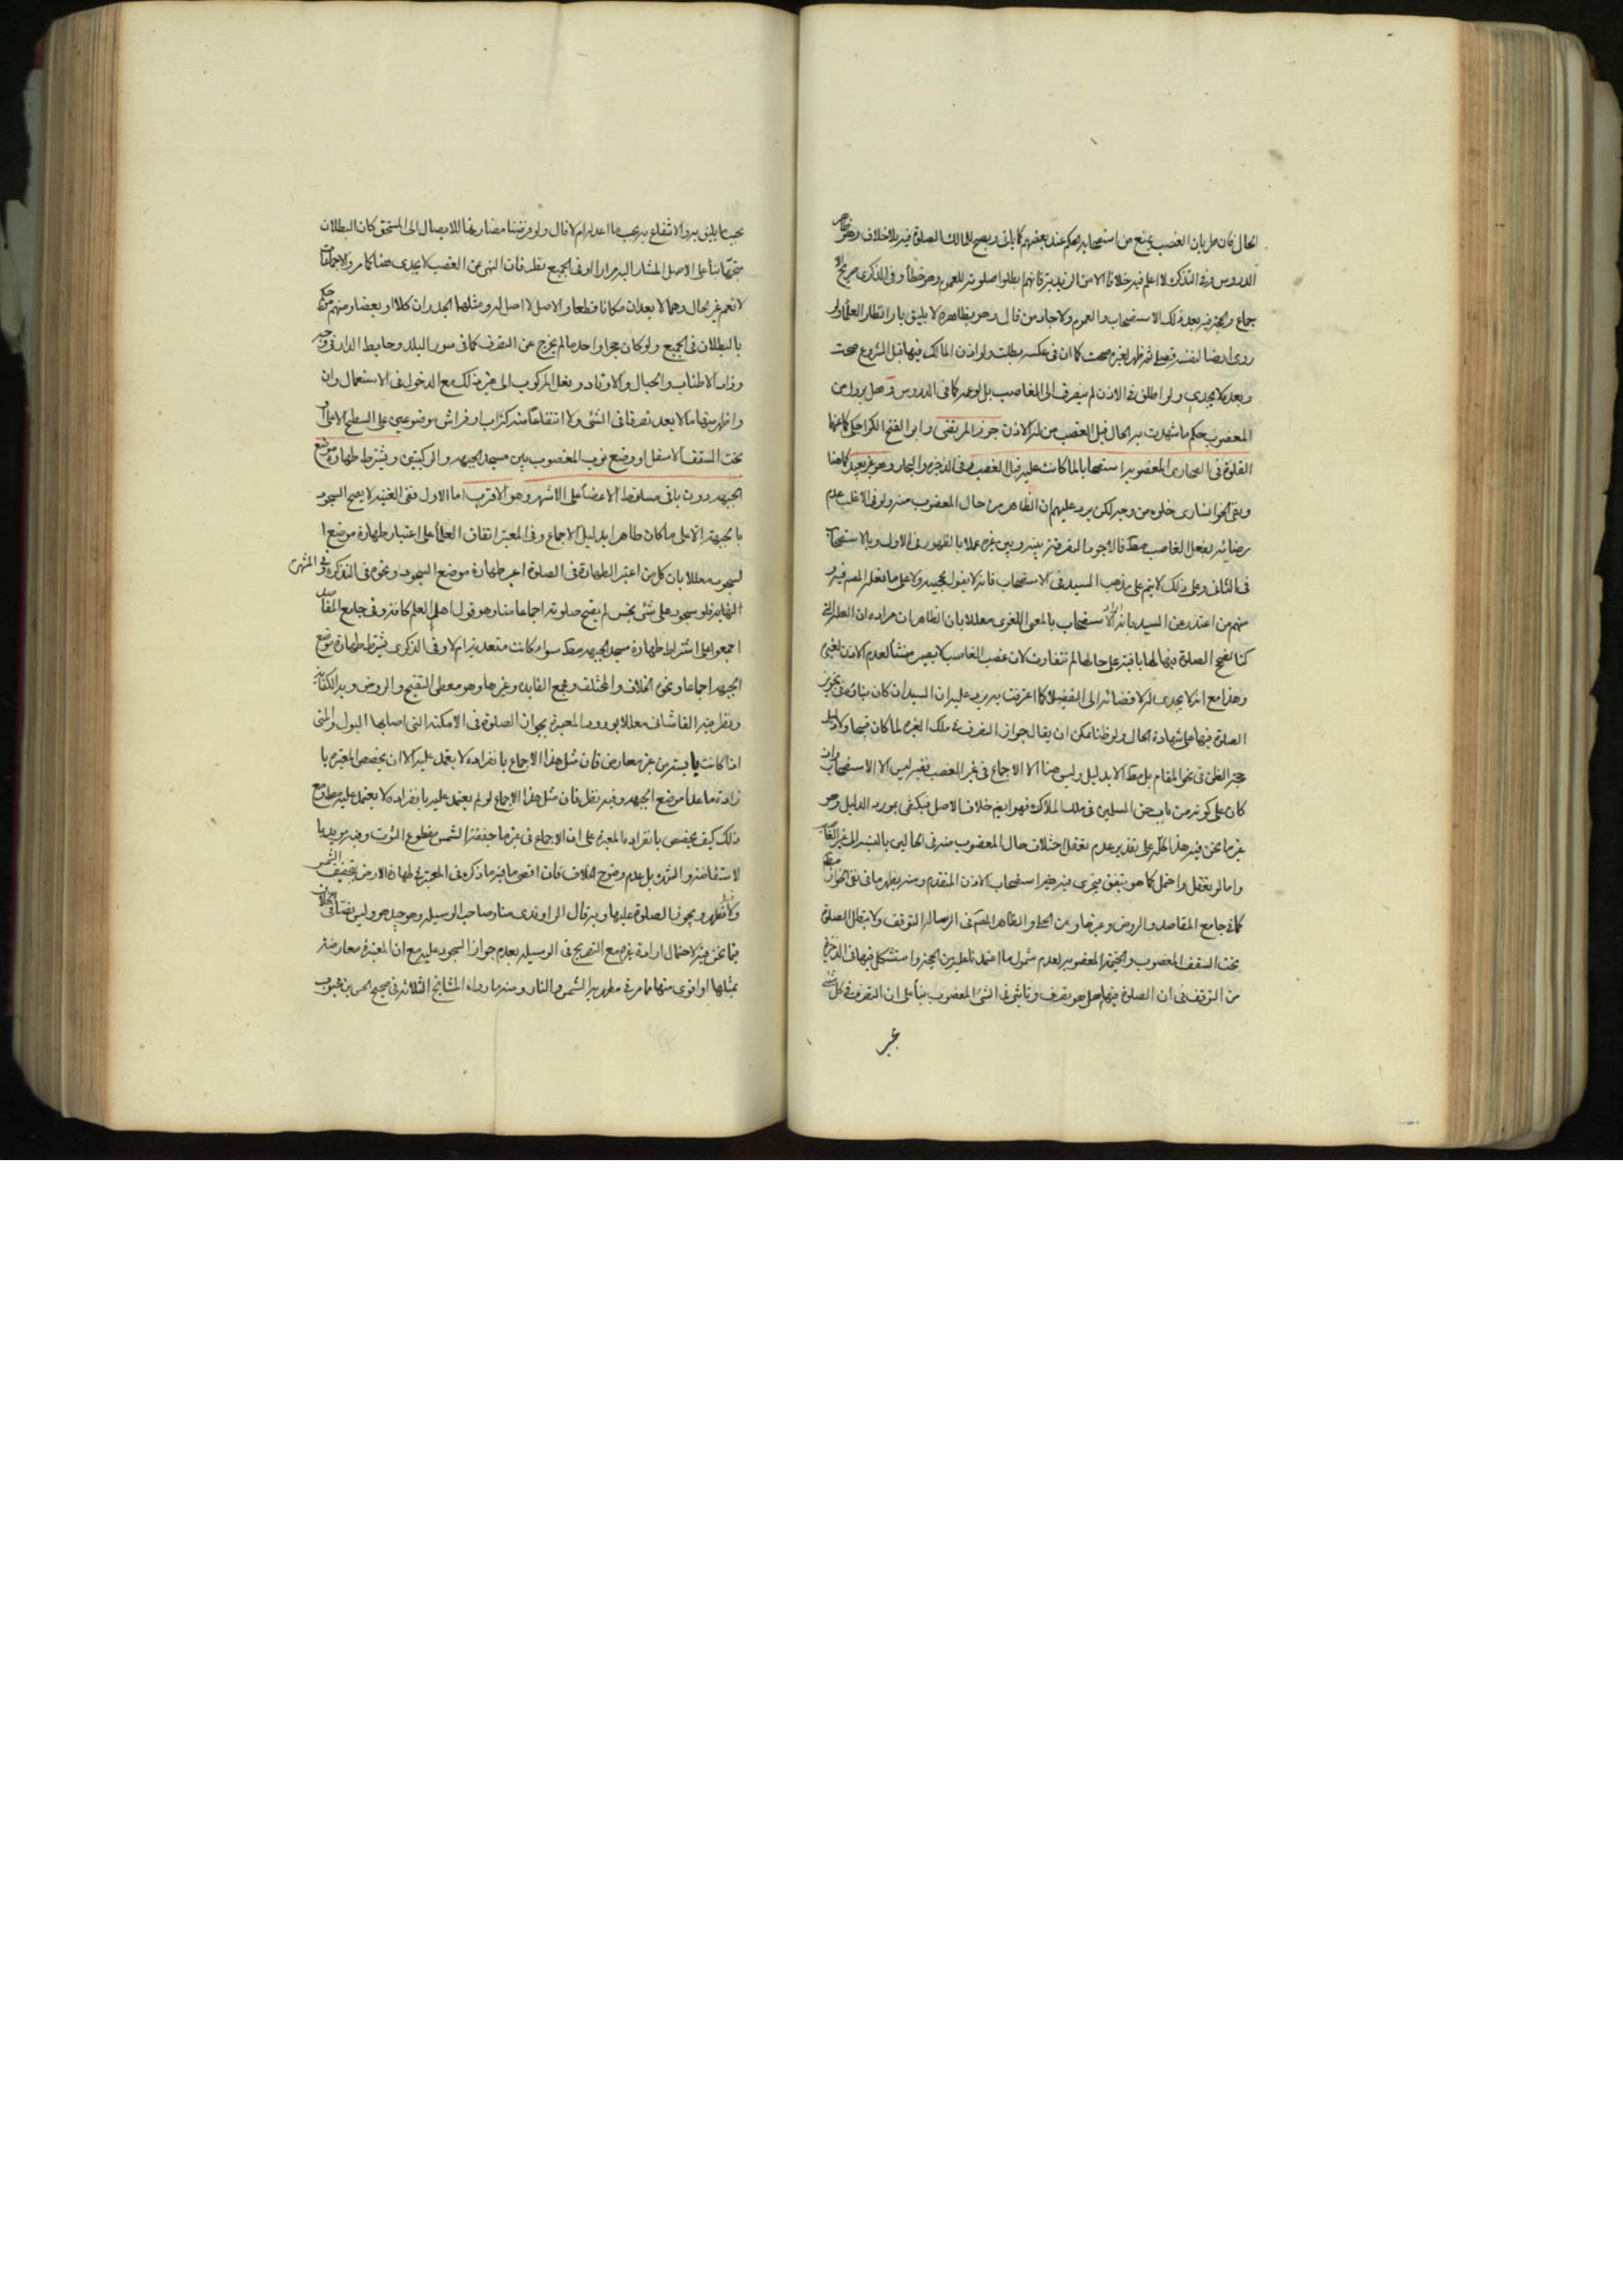 الحال فان طريان الغصب يمنع من استصحابه الحكم عند بعضهم كما ياتى ويصح للمالك الصلوة فيه بلا خلاف وهو ظاهر
الدروس وفى التذكرة لا اعلم فيه خلافا الا من الزيدية فانهم ابطلوا صلوته للعموم وهو خطأ وفى الذكرى صريح الا
جماع والحجة فيه بعد ذلك الاستصحاب والعموم ولا جابر من قال وهو بظاهره لا يليق بانظار العلماء ولو
روى ارضا لنفسه فصلى ثم ظهر لغيره صحت كما ان فى عكسه بطلت ولو اذن المالك فيها قبل الشروع صحت
وبعده لا يجدى ولو اطلق فى الاذن لم ينصرف الى الغاصب بل لو عمه كما فى الدروس وهل يزول من
المغصوب حكم ما شهدت به الحال قبل الغصب من الاذن جوز المرتضى وابو الفتح الكراجكى كما عنهما
الصلوة فى الصحارى المغصوبة استصحابا لما كانت عليه قبل الغصب وفى الذخيرة والبحار وهو غير بعيد كما هنا
ونفى الخوانسارى خلوه من وجه لكن يرد عليهم ان الظاهر من حال المغصوب منه ولو فى الاغلب عدم
رضائه بفعل الغاصب مط فالاجود التفرقة بينه وبين غيره عملا بالظهور فى الاول وبالاستصحاب
فى الثانى وعلى ذلك لا يتم على مذهب السيد فى الاستصحاب فانه لا يقول بحجيته ولا على ما نقله المص فيه و
منهم من اعتذر عن السيد بانه اراد الاستصحاب بالمعنى اللغوى معللا بان الظاهر ان مراده ان العلة التى
كنا نصحح الصلوة فيها لها باقية على حالها لم تتفاوت لان غصب الغاصب لا يصير منشأ لعدم الاذن لغيره
وهذا مع انه لا يجدى له لافضائه الى التفصيل كما اعترفت به يرد عليه ان السيد ان كان بناؤه فى تجويز
الصلوة فيها على شهادة الحال ولو ظنا امكن ان يقال جواز التصرف فى ملك الغير لما كان قبيحا ولا دليل
حجية الظن فى نحو المقام بل مط الا بدليل وليس هنا الا الاجماع فى غير الغصب ففيه ليس الا الاستصحاب وان
كان على كونه من باب حق المسلمين فى ملك الملاك فهو ايضا خلاف الاصل فيكتفى بمورد الدليل وهو
غير ما نحن فيه هذا كله على تقدير عدم تعقل اختلاف حال المغصوب منه فى الحالين بالنسبة الى غير الغاصب
واما لو تعقل واحتمل كما هو يتفق فيجرى فيه خيرا استصحاب الاذن المتقدم ومنه يظهر ما فى نفى الجواز مط
كما فى جامع المقاصد والروض وغيرهما وعن الحلى والظاهر المص فى الرسالة التوقف ولا تبطل الصلوة
تحت السقف المغصوب والخيمة المغصوبة لعدم شمول ما اعتمد ناه عليه من الحجة واستشكل فيها فى الذخيرة
من التوقف فى ان الصلوة فيها هل هو تصرف وتاثير فى الشئ المغصوب بناء على ان التصرف فى كل شئ
بحسب ما يليق به والانتفاع به بحسب ما اعد له ام لا قال ولو فرضنا مضادتها للايصال الى المستحق كان البطلان
متجها بناء على الاصل المشار اليه مرارا وفى الجميع نظر فان النهى عن الغصب لا يجدى هنا كما مر والاجماعات
لا تعم غير محال وهما لا يعدان مكانا قطعا والاصل لا اصل له ومثلهما الجدران كلا او بعضا ومنهم من حكم
بالبطلان فى الجميع ولو كان حجرا واحدا ما لم يخرج عن التصرف كما فى سور البلد وحايط الدار فى وجه
وزاد الاطناب والحبال والاوتاد ونعل المركوب الى غير ذلك مع الدخول فى الاستعمال وان
واظهر منها ما لا يعد تصرفا فى الشئ ولا انتفاعا منه كتراب او فراش موضوعين على السطح الاعلى او
تحت السقف الاسفل او وضع ثوب المغصوب بين مسجد الجبهة والركبتين ويشترط طهارة موضع
الجبهة دون باقى مساقط الاعضاء على الاشهر وهو الاقرب اما الاول ففى الغنية لا يصح السجود
بالجبهة الا على ما كان طاهرا بدليل الاجماع وفى المعتبر اتفاق العلماء على اعتبار طهارة موضع ا
لسجود معللا بان كل من اعتبر الطهارة فى الصلوة اعتبر طهارة موضع السجود ونحوه فى التذكرة وفى المنتهى
النهاية فلو سجود على شئ نجس لم يصح صلوته اجماعا منا وهو قول اهل العلم كافة وفى جامع المقاصد
اجمعوا على اشتراط طهارة مسجد الجبهة مط سواء كانت متعدية ام لا وفى الذكرى يشترط طهارة موضع
الجبهة اجماعا ونحوه الخلاف والمختلف ومجمع الفايدة وغيرها وهو معطى التنقيح والروض ويه الكفاية
ونظر فيه القاشانى معللا بورود المعتبرة بجواز الصلوة فى الامكنة التى اصابها البول والمنى
اذا كانت يابسة من غير معارض فان مثل هذا الاجماع بانفراده لا يعتمد عليه الا ان يخصص المعتبرة با
رادة ما عدا موضع الجبهة وفيه نظر فان مثل هذا الاجماع لو لم يعتمد عليه بانفراده لا يعتمد عليه مط ومع
ذلك كيف يخصص بانفراده المعتبرة على ان الاجماع فى غير ما جففته الشمس مقطوع الثبوت ويزيد بيانا
لاستفاضته والشهرة بل عدم وضوح الخلاف فان اقصى ما فيه ما ذكره فى المعتبر فى طهارة الارض بتجفيف الشمس
ولا تطهر ويجوز الصلوة عليها وبه قال الراوندى منا وصاحب الوسيلة وهو جيد وهو وليس نصا فى الخلاف
فيما نحن فيه لاحتمال ارادة غيره مع التصريح فى الوسيلة بعدم جواز السجود عليه مع ان المعتبرة معارضة
بمثلها او اقوى منها مما مر فى مطهرية الشمس والنار ومنه ما رواه المشايخ الثلثة فى صحيح الحسن بن محبوب